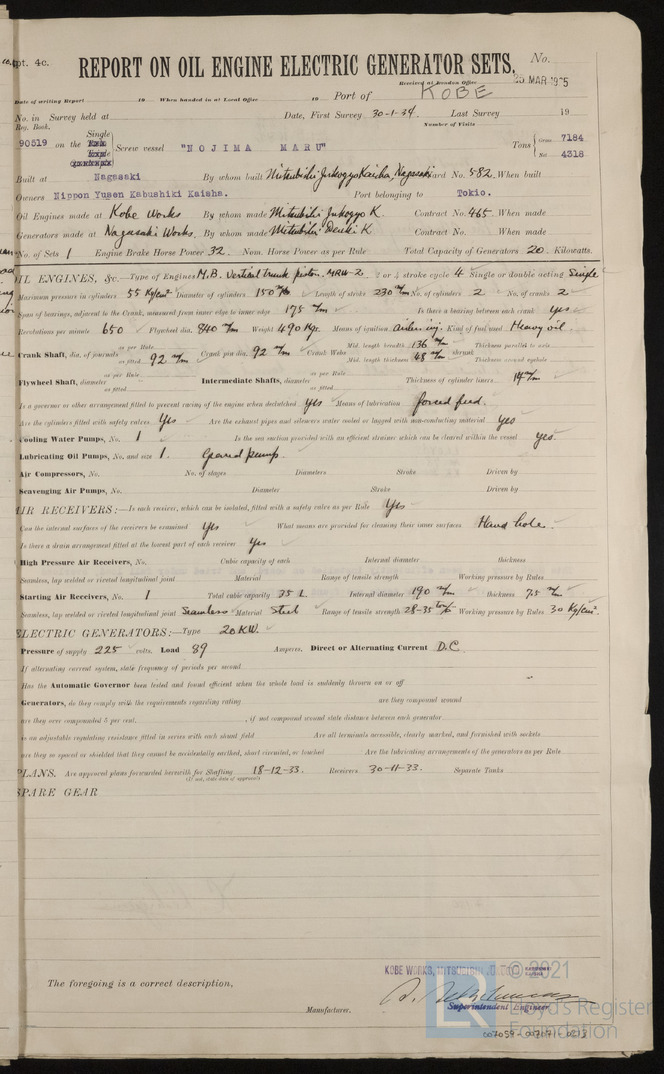 Rpt. 4c.
REPORT ON OIL ENGINE ELECTRIC GENERATOR SETS.
No.
Received at London Office 25 MAR 1935
Date of writing Report 19 When handed in at Local Office 19 Port of KOBE
No. in Survey held at Date, First Survey 30-1-34 Last Survey 19
Reg. Book. Number of Visits
90519 on the Single Screw vessel "NOJIMA MARU" Tons Gross 7184
Net 4318
Built at Nagasaki By whom built Mitsubishi Jukogyo Kaisha, Nagasaki Yard No. 582 When built
Owners Nippon Yusen Kabushiki Kaisha. Port belonging to Tokio.
Oil Engines made at Kobe Works By whom made Mitsubishi Jukogyo K. Contract No. 465 When made
Generators made at Nagasaki Works. By whom made Mitsubishi Denki K Contract No. When made
No. of Sets 1 Engine Brake Horse Power 32. Nom. Horse Power as per Rule Total Capacity of Generators 20 Kilowatts.
OIL ENGINES, &c.—Type of Engines M.B. Vertical trunk piston. MRW-2 2 or 4 stroke cycle 4 Single or double acting Single
Maximum pressure in cylinders 55 Kg/cm² Diameter of cylinders 150 m/m Length of stroke 230 m/m No. of cylinders 2 No. of cranks 2
Span of bearings, adjacent to the Crank, measured from inner edge to inner edge 175 m/m Is there a bearing between each crank Yes
Revolutions per minute 650 Flywheel dia. 840 m/m Weight 490 Kgs. Means of ignition Kind of fuel used Heavy oil
Crank Shaft, dia. of journals as per Rule
as fitted 92 m/m Crank pin dia. 92 m/m Crank Webs Mid. length breadth 136 m/m Thickness parallel to axis
Mid. length thickness 48 m/m shrunk Thickness around eyehole
Flywheel Shaft, diameter as per Rule as fitted Intermediate Shafts, diameter as per Rule as fitted Thickness of cylinder liners 14 m/m
Is a governor or other arrangement fitted to prevent racing of the engine when declutched Yes Means of lubrication forced feed.
Are the cylinders fitted with safety valves Yes Are the exhaust pipes and silencers water cooled or lagged with non-conducting material yes
Cooling Water Pumps, No. 1 Is the sea suction provided with an efficient strainer which can be cleared within the vessel yes.
Lubricating Oil Pumps, No. and size 1. Geared pump.
Air Compressors, No. No. of stages Diameters Stroke Driven by
Scavenging Air Pumps, No. Diameter Stroke Driven by
AIR RECEIVERS:—Is each receiver, which can be isolated, fitted with a safety valve as per Rule Yes
Can the internal surfaces of the receivers be examined Yes What means are provided for cleaning their inner surfaces Hand hole.
Is there a drain arrangement fitted at the lowest part of each receiver Yes
High Pressure Air Receivers, No. Cubic capacity of each Internal diameter thickness
Seamless, lap welded or riveted longitudinal joint Material Range of tensile strength Working pressure by Rules
Starting Air Receivers, No. 1 Total cubic capacity 35 L. Internal diameter 190 m/m thickness 7.5 m/m
Seamless, lap welded or riveted longitudinal joint Seamless Material Steel Range of tensile strength 28-35 Working pressure by Rules 30 Kg/cm²
ELECTRIC GENERATORS:—Type 20 KW.
Pressure of supply 225 volts. Load 89 Amperes. Direct or Alternating Current D.C.
If alternating current system, state frequency of periods per second
Has the Automatic Governor been tested and found efficient when the whole load is suddenly thrown on or off
Generators, do they comply with the requirements regarding rating are they compound wound
are they over compounded 5 per cent. , if not compound wound state distance between each generator
is an adjustable regulating resistance fitted in series with each shunt field Are all terminals accessible, clearly marked, and furnished with sockets
are they so spaced or shielded that they cannot be accidentally earthed, short circuited, or touched Are the lubricating arrangements of the generators as per Rule
PLANS. Are approved plans forwarded herewith for Shafting 18-12-33. Receivers 30-11-33. Separate Tanks
(If not, state date of approval)
SPARE GEAR
KOBE WORKS, MITSUBISHI
© 2021
The foregoing is a correct description,
Superintendent Engineer
Manufacturer.
LR
Lloyd's Register
Foundation
007059-007071-0213